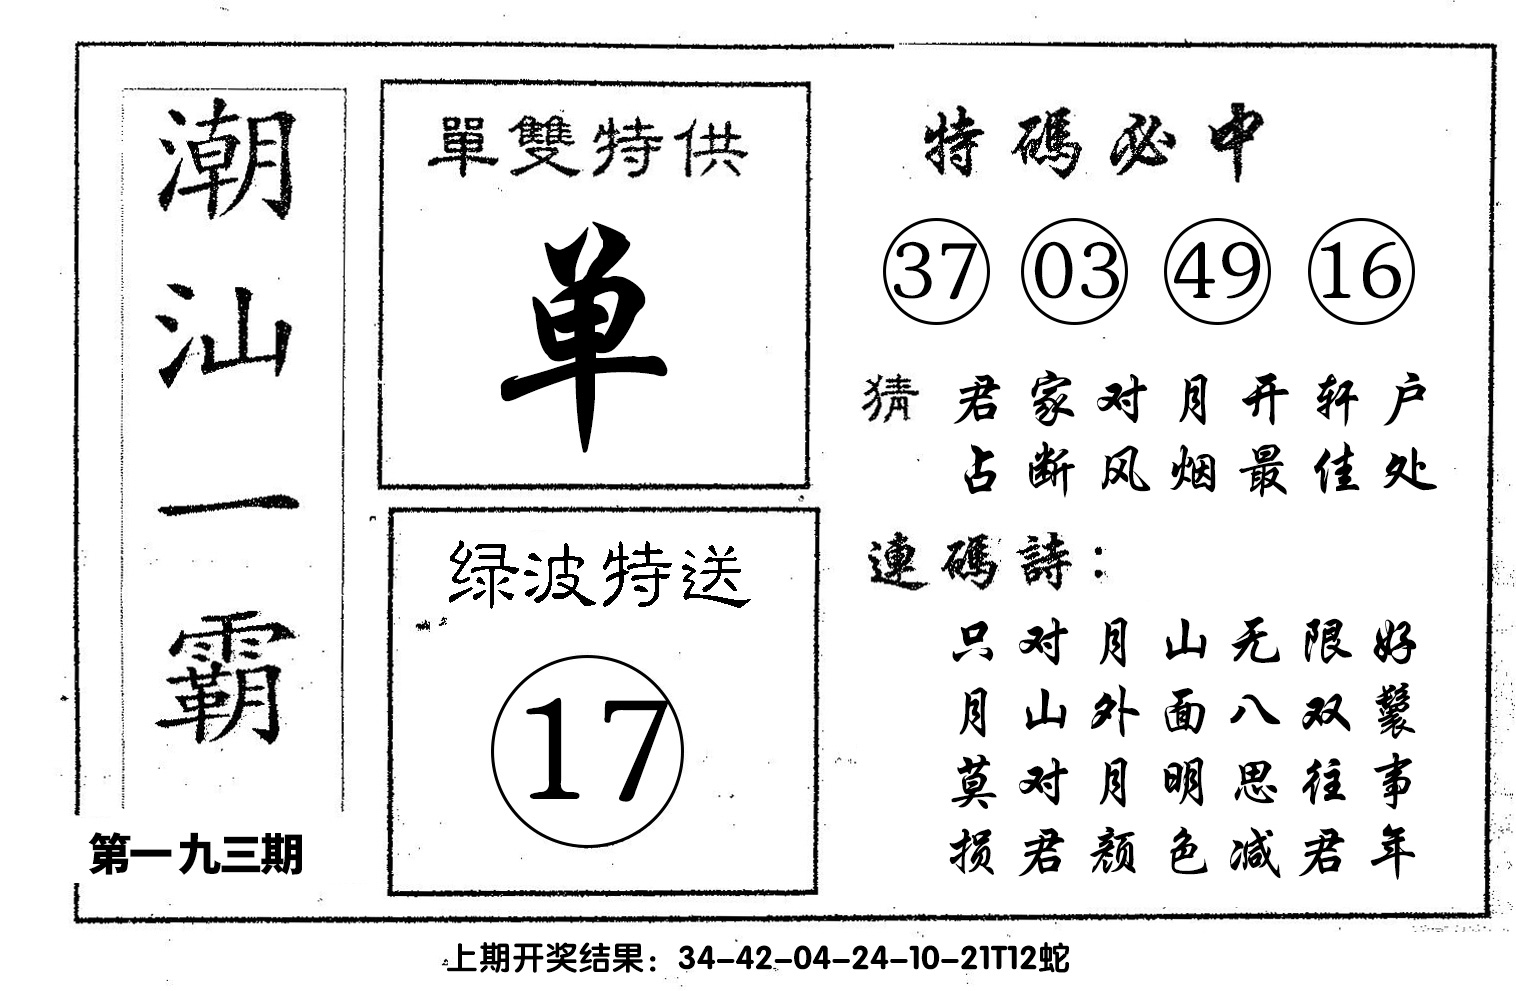 潮汕一霸
第一九三期
單雙特供
单
绿波特送
17
特碼必中
37 03 49 16
猜 君家对月开轩户
占断风烟最佳处
連碼詩：
只对月山无限好
月山外面八双鬟
莫对月明思往事
损君颜色减君年
上期开奖结果：34-42-04-24-10-21T12蛇